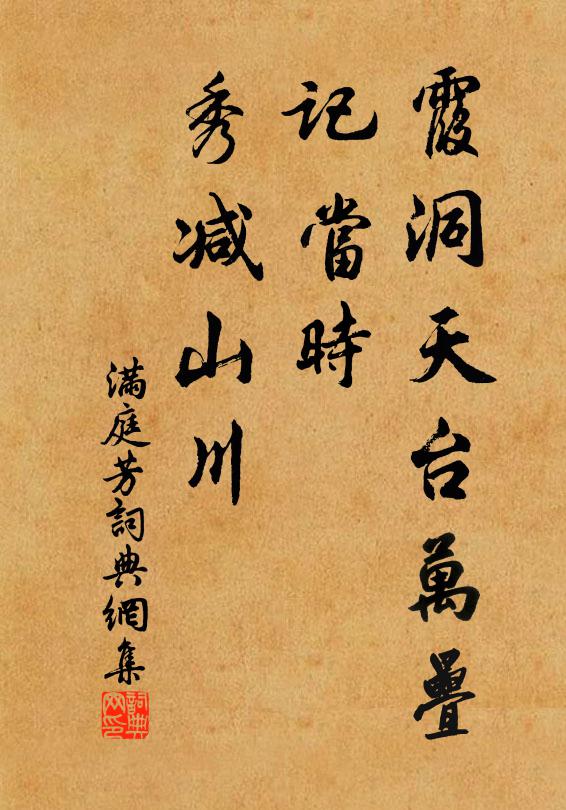 霞洞天台萬疊
記當時
秀減山川
滿庭芳詞典網集
詞典
网印